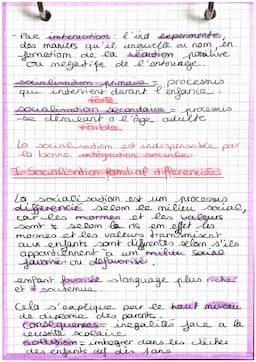 - Par interaction : l'ind expérimente,
des manières qu'il ou non, en
fonction de la réaction positive
ou négatife de l'entourage.
socialisation primaire = processus
qui intervient durant l'enfance.
forte
socialisation secondaire = processus
se déroulant a l'âge adulte
faible
La socialisation est indispensable par
la bonne intégration sociale.
I. Socialisation familial différenciée
La socialisation est un processus
différencié selon le milieu social,
car les normes et les valeurs
sont ≠ selon la en effet les
normes et les valeurs transmisent
aux enfants sont différentes selon s'ils
appartiennent à un milieu social
favorisé ou défavorisé.
enfant favorisé → language plus riche
et + soutenue.
Cela s'explique par le haut niveau
de diplome des parents.
Conséquences = inégalités face a la
scolaire
= intégrer dans les
des enfants def. des